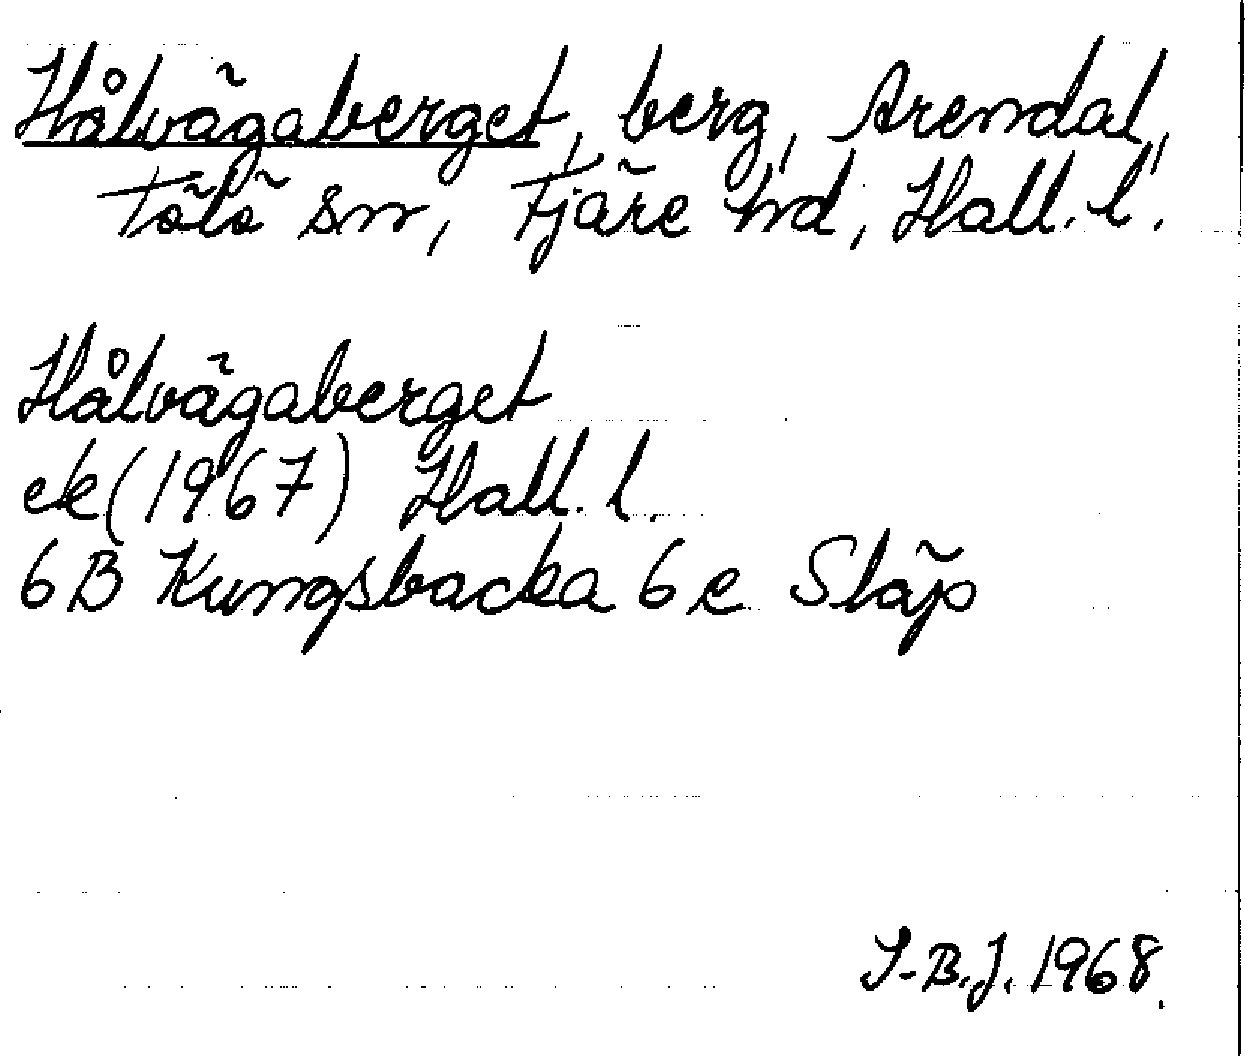 Hålvägaberget, berg, Arendal,
Tölö sn, Fjäre hd, Hall. l.
Hålvägaberget
ek (1967) Hall. l.
6B Kungsbacka 6e Släp
I-B.J. 1968.